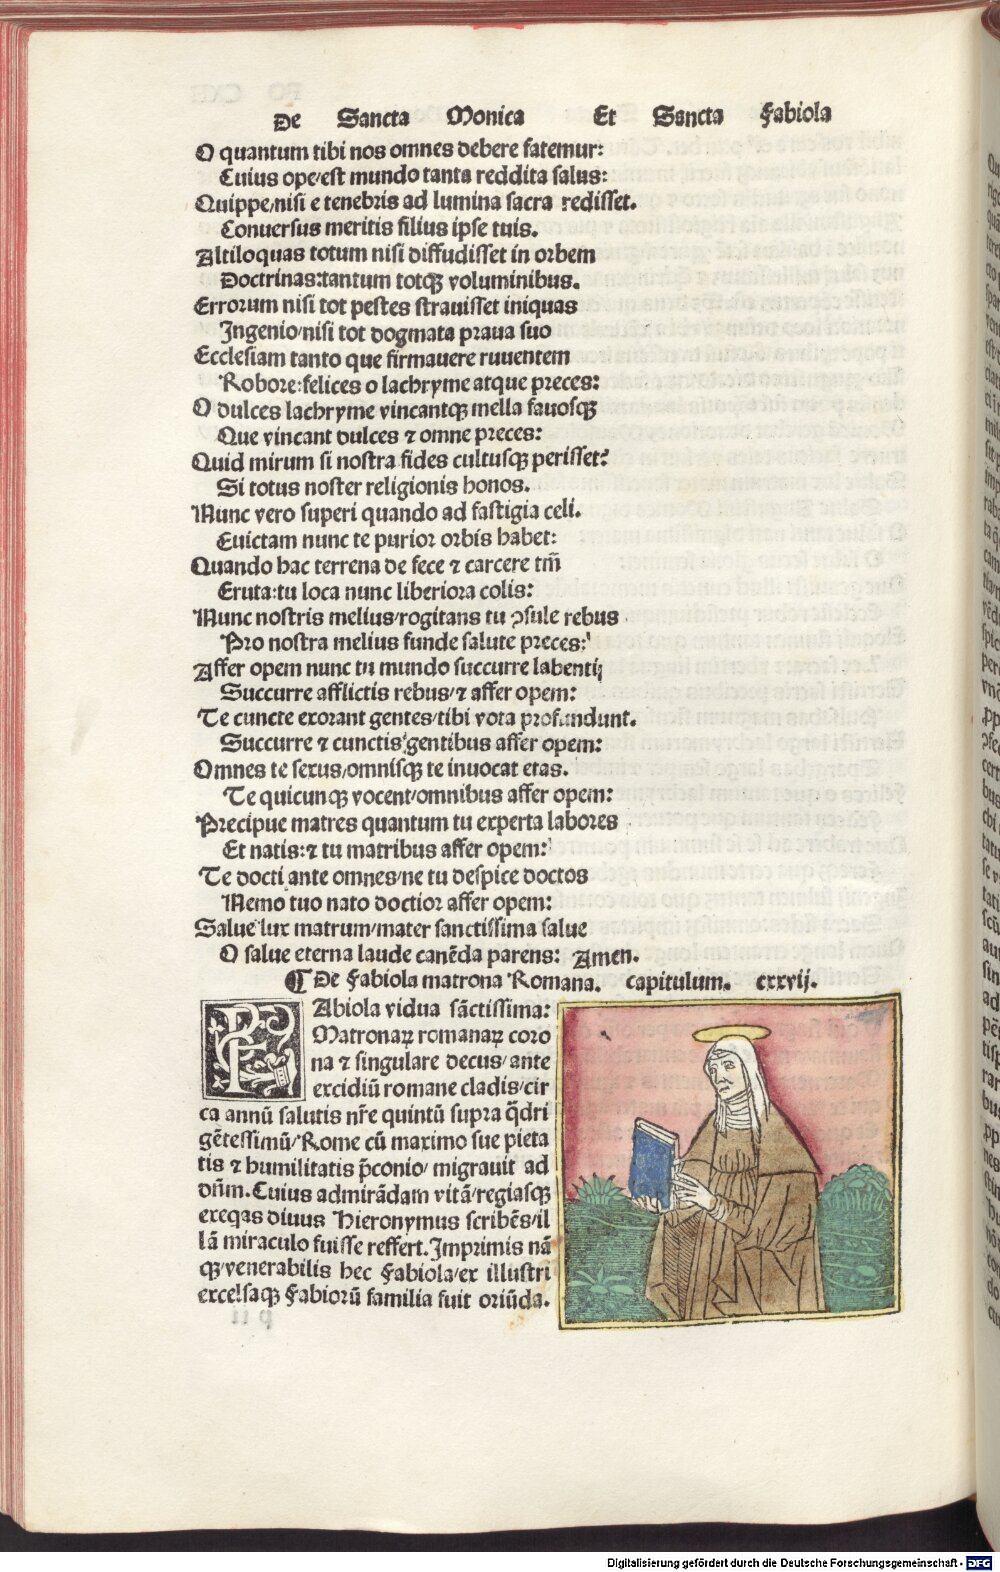 De Sancta Monica Et Sancta Fabiola
O quantum tibi nos omnes debere fatemur:
Cuius ope/est mundo tanta reddita salus:
Quippe/nisi e tenebris ad lumina sacra redisset.
Conuersus meritis filius ipse tuis.
Altiloquas totum nisi diffudisset in orbem
Doctrinas:tantum totqꝫ voluminibus.
Errorum nisi tot pestes strauisset iniquas
Ingenio/nisi tot dogmata praua suo
Ecclesiam tanto que firmauere ruuentem
Robore:felices o lachryme atque preces:
O dulces lachryme vincantqꝫ mella fauosqꝫ
Que vincant dulces ⁊ omne preces:
Quid mirum si nostra fides cultusqꝫ perisset?
Si totus noster religionis honos.
Nunc vero superi quando ad fastigia celi.
Euictam nunc te purior orbis habet:
Quando hac terrena de fece ⁊ carcere tm̄
Eruta:tu loca nunc liberiora colis:
Nunc nostris melius/rogitans tu ꝯsule rebus
Pro nostra melius funde salute preces:
Affer opem nunc tu mundo succurre labentij
Succurre afflictis rebus/⁊ affer opem:
Te cuncte exorant gentes/tibi vota profundunt.
Succurre ⁊ cunctis gentibus affer opem:
Omnes te sexus/omnisqꝫ te inuocat etas.
Te quicunqꝫ vocent/omnibus affer opem:
Precipue matres quantum tu experta labores
Et natis:⁊ tu matribus affer opem:
Te docti ante omnes/ne tu despice doctos
Nemo tuo nato doctior affer opem:
Salue lux matrum/mater sanctissima salue
O salue eterna laude canēda parens: Amen.
¶ De Fabiola matrona Romana. Capitulum. cxxvij.
FAbiola vidua sāctissima:
Matronaꝝ romanaꝝ coro
na ⁊ singulare decus/ante
excidiū romane cladis/cir
ca annū salutis nr̄e quintū supra q̄dri
gētessimū/Rome cū maximo sue pieta
tis ⁊ humilitatis p̄conio/migrauit ad
dn̄m. Cuius admirādam vitā/regiasqꝫ
exeqas diuus Hieronymus scribēs/il
lā miraculo fuisse reffert. Imprimis nā
qꝫ/venerabilis hec Fabiola/ex illustri
excelsaqꝫ Fabiorū familia fuit oriūda.
Digitalisierung gefördert durch die Deutsche Forschungsgemeinschaft - DFG